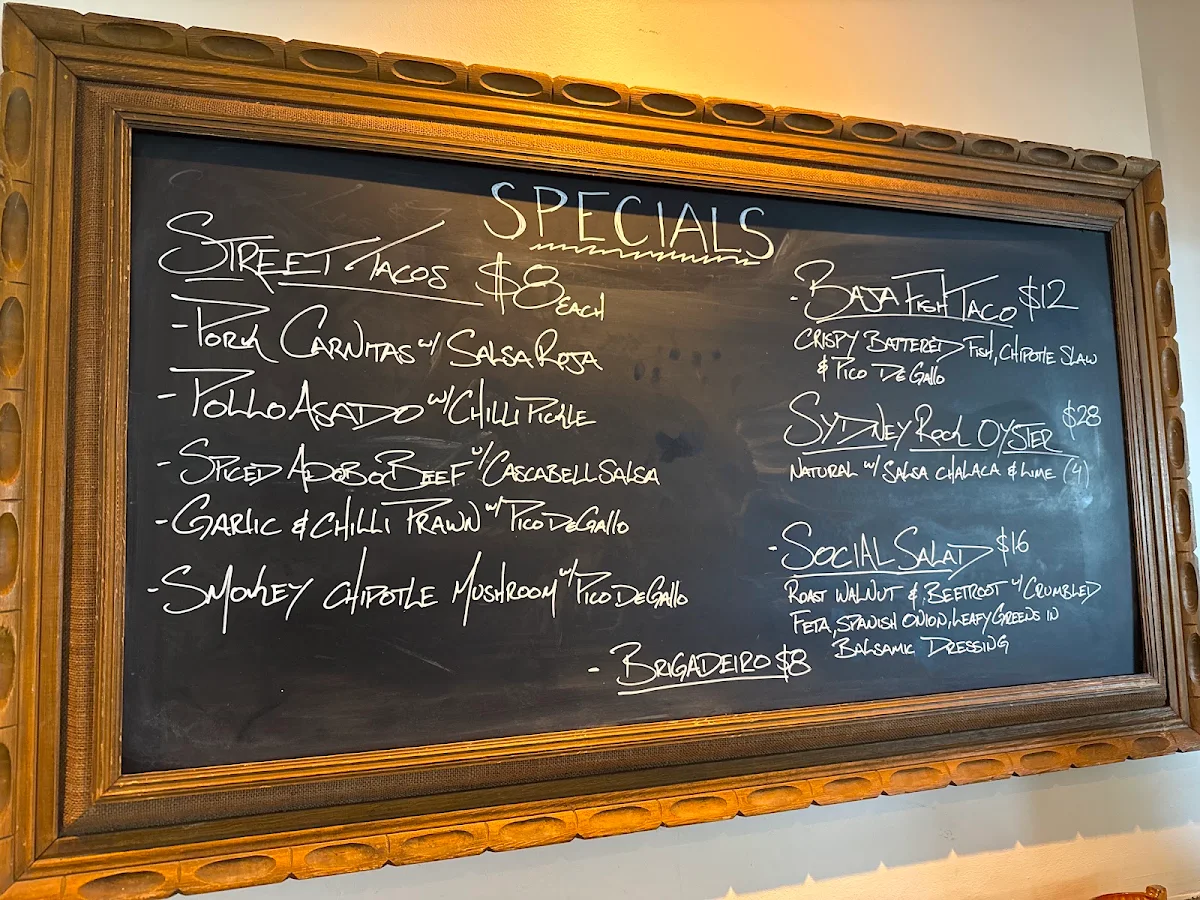 SPECIALS
STREET TACOS $8 EACH
- PORK CARNITAS w/ SALSA ROJA
- POLLO ASADO w/ CHILLI PICKLE
- SPICED ADOBO BEEF w/ CASCABELL SALSA
- GARLIC & CHILLI PRAWN w/ PICO DE GALLO
- SMOKEY CHIPOTLE MUSHROOM w/ PICO DE GALLO
- BAJA FISH TACO $12
CRISPY BATTERED FISH, CHIPOTLE SLAW
& PICO DE GALLO
SYDNEY ROCK OYSTER $28
NATURAL w/ SALSA CHALACA & LIME (4)
- SOCIAL SALAD $16
ROAST WALNUT & BEETROOT w/ CRUMBLED
FETA, SPANISH ONION, LEAFY GREENS IN
BALSAMIC DRESSING
- BRIGADEIRO $8